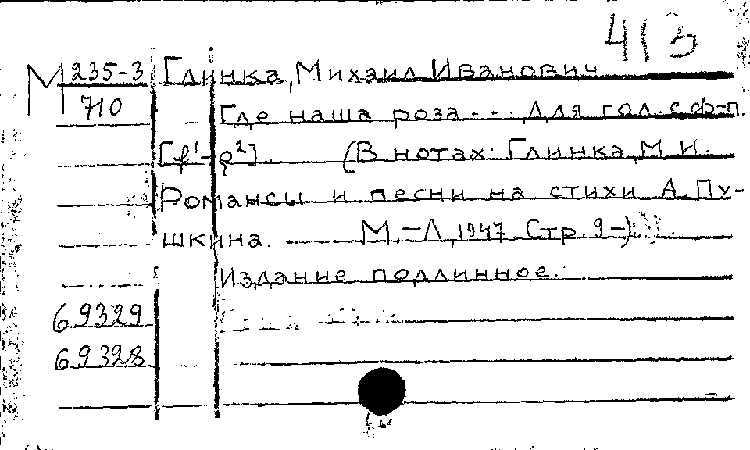 413
М 235-3 Глинка, Михаил Иванович
710 Где наша роза... Для гол. с ф-п.
[f¹-g²]. (В нотах: Глинка, М. И.
Романсы и песни на стихи А. Пу-
шкина. М.-Л., 1947. Стр. 9-)
Издание подлинное.
69329
69328